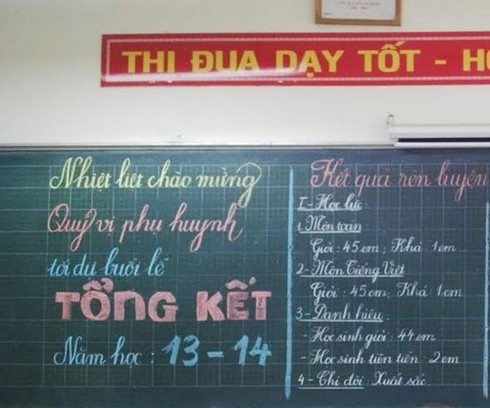 THI ĐUA DẠY TỐT - H
Nhiệt liệt chào mừng
Quý vị phụ huynh
tới dự buổi lễ
TỔNG KẾT
Năm học : 13 - 14
Kết quả rèn luyện
I - Học lực:
1. Môn toán
Giỏi : 45 em ; Khá : 1 em
2 - Môn Tiếng Việt
Giỏi : 45 em; Khá : 1 em
3 - Danh hiệu:
- Học sinh giỏi : 44 em
- Học sinh tiên tiến : 2 em
4 - Chi đội : Xuất sắc